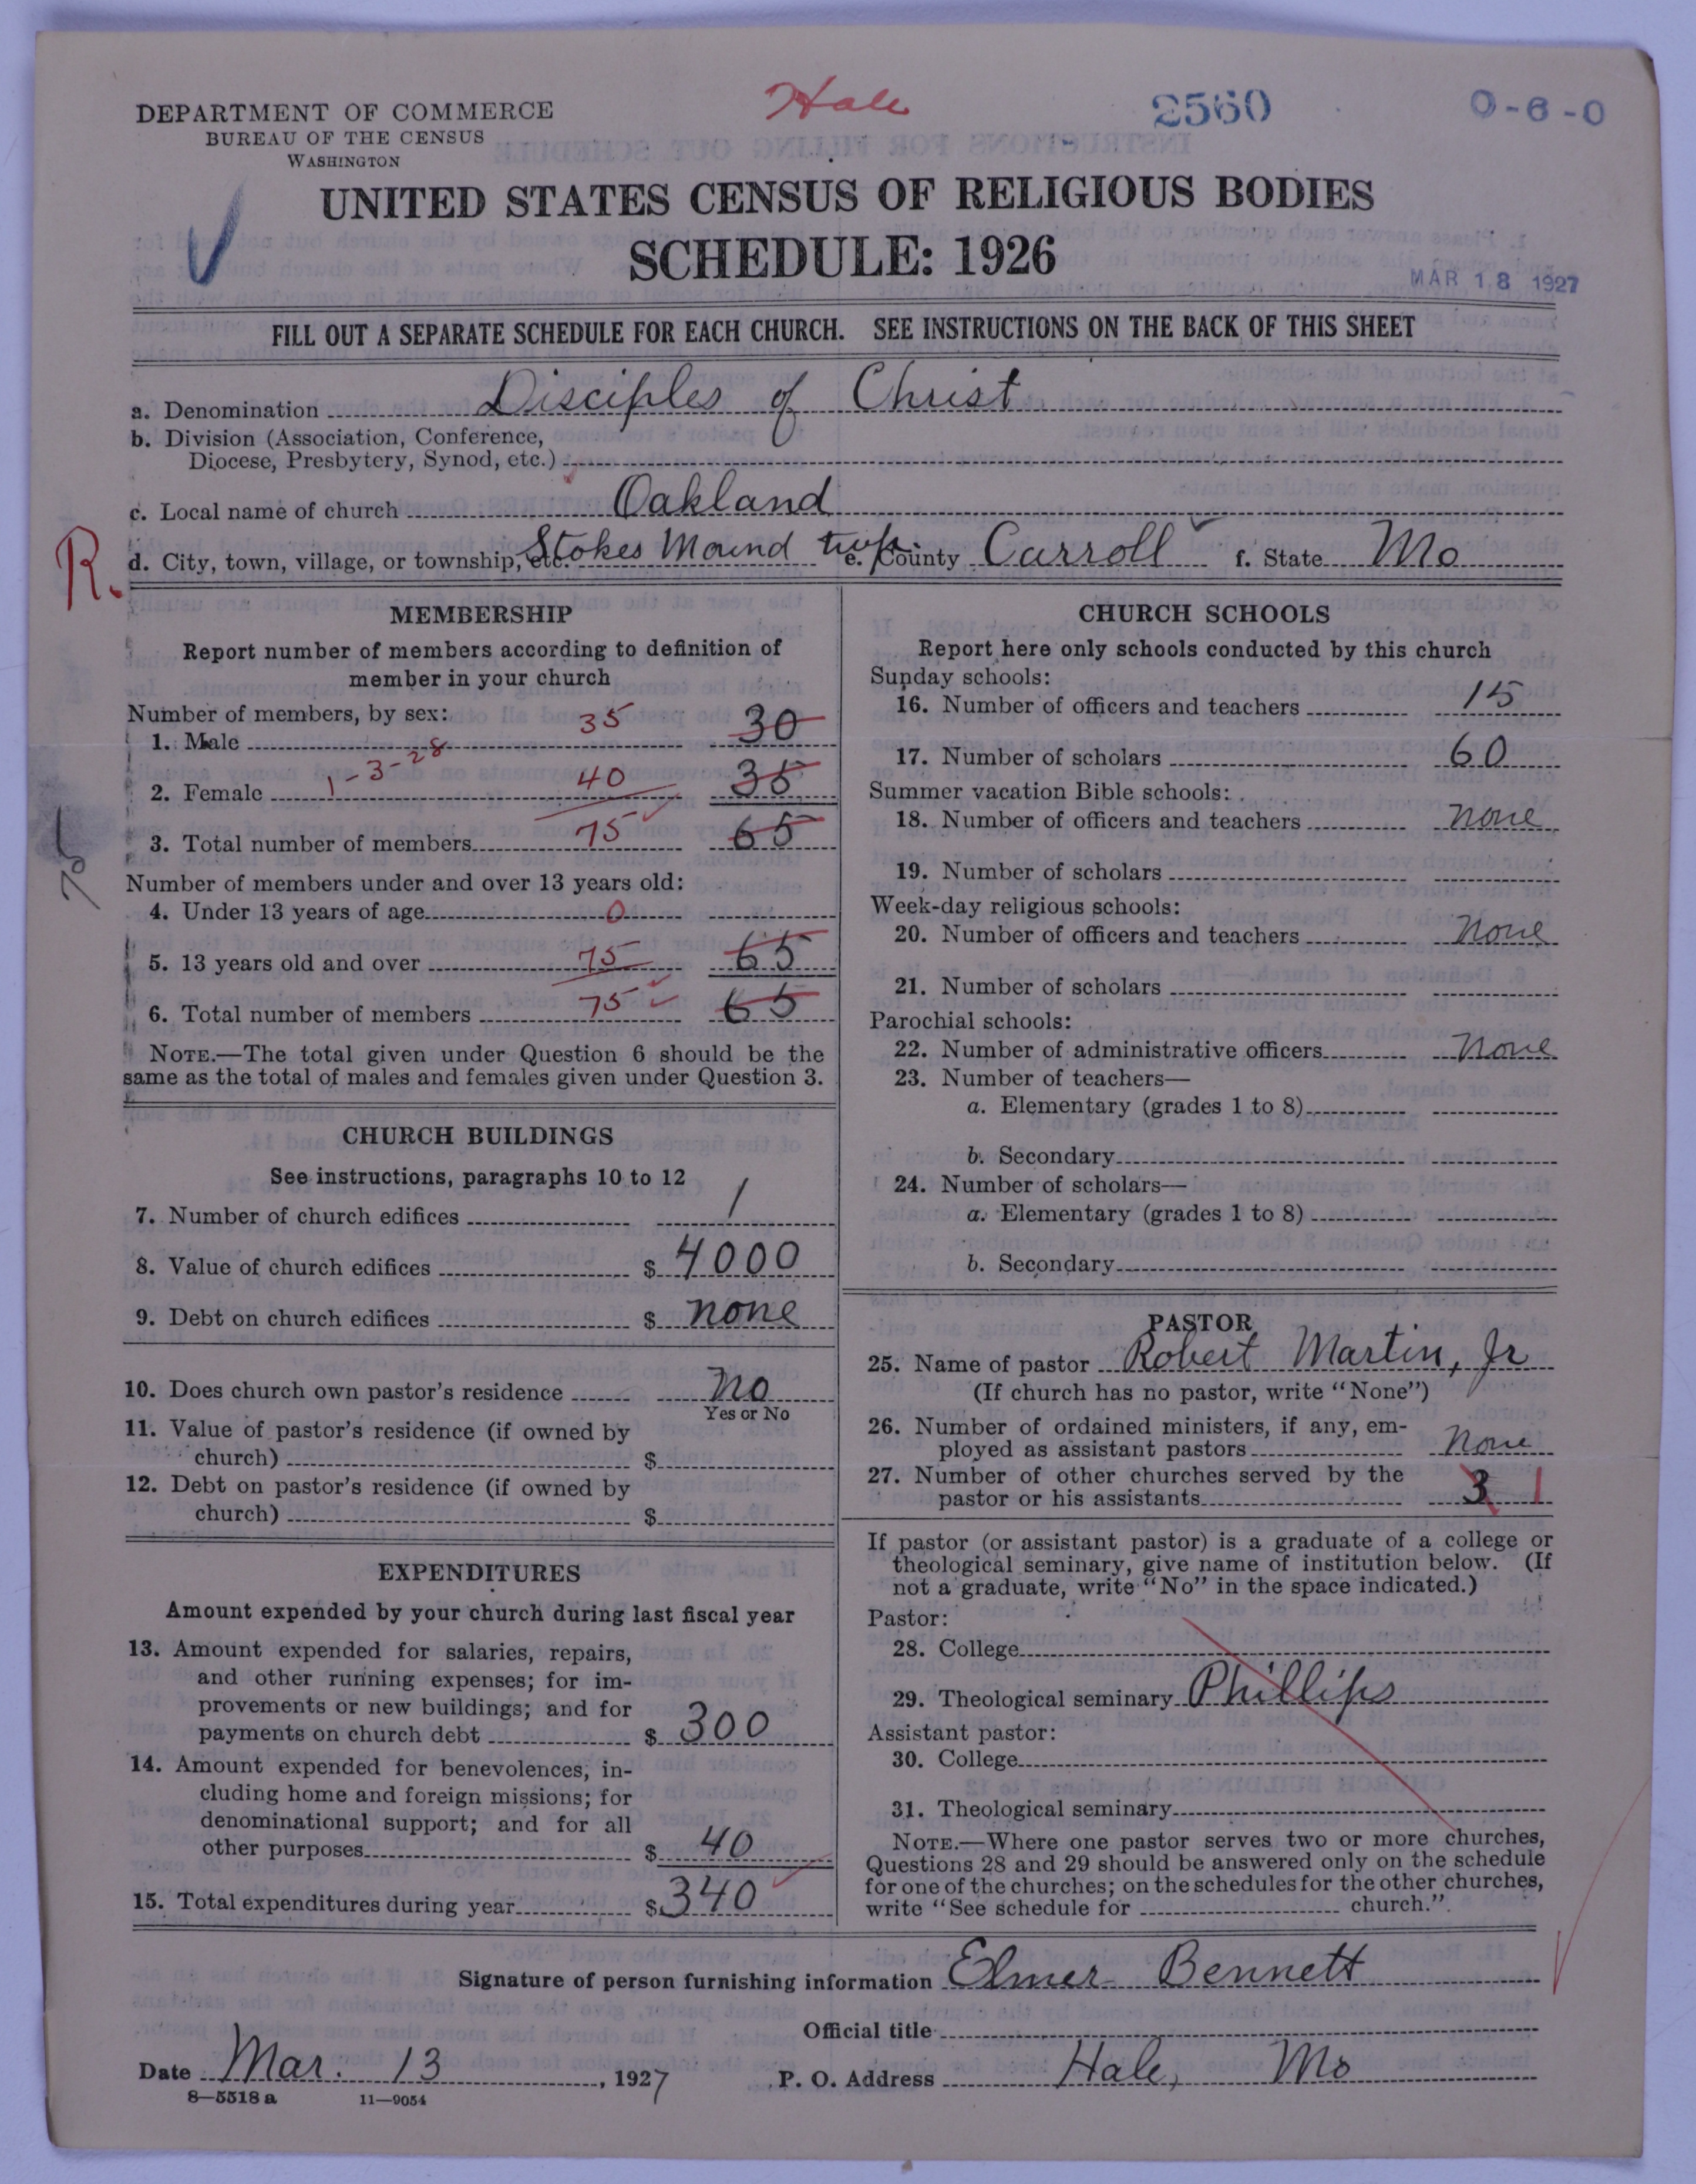 Hale
2560
0-6-0
DEPARTMENT OF COMMERCE
BUREAU OF THE CENSUS
WASHINGTON
UNITED STATES CENSUS OF RELIGIOUS BODIES
SCHEDULE: 1926
MAR 18 1927
FILL OUT A SEPARATE SCHEDULE FOR EACH CHURCH. SEE INSTRUCTIONS ON THE BACK OF THIS SHEET
a. Denomination Disciples of Christ
b. Division (Association, Conference,
Diocese, Presbytery, Synod, etc.)
c. Local name of church Oakland
R.
d. City, town, village, or township, etc. Stokes Mound twp. e. County Carroll f. State Mo
MEMBERSHIP
Report number of members according to definition of
member in your church
Number of members, by sex:
1. Male 35 30
1-3-28
2. Female 40 35
3. Total number of members 75 65
75
Number of members under and over 13 years old:
4. Under 13 years of age 0
5. 13 years old and over 75 65
6. Total number of members 75 65
NOTE.—The total given under Question 6 should be the
same as the total of males and females given under Question 3.
CHURCH BUILDINGS
See instructions, paragraphs 10 to 12
7. Number of church edifices 1
8. Value of church edifices $ 4000
9. Debt on church edifices $ none
10. Does church own pastor's residence no
Yes or No
11. Value of pastor's residence (if owned by
church) $
12. Debt on pastor's residence (if owned by
church) $
EXPENDITURES
Amount expended by your church during last fiscal year
13. Amount expended for salaries, repairs,
and other running expenses; for im-
provements or new buildings; and for
payments on church debt $ 300
14. Amount expended for benevolences, in-
cluding home and foreign missions; for
denominational support; and for all
other purposes $ 40
15. Total expenditures during year $ 340
CHURCH SCHOOLS
Report here only schools conducted by this church
Sunday schools:
16. Number of officers and teachers 15
17. Number of scholars 60
Summer vacation Bible schools:
18. Number of officers and teachers none
19. Number of scholars
Week-day religious schools:
20. Number of officers and teachers none
21. Number of scholars
Parochial schools:
22. Number of administrative officers none
23. Number of teachers—
a. Elementary (grades 1 to 8)
b. Secondary
24. Number of scholars—
a. Elementary (grades 1 to 8)
b. Secondary
PASTOR
25. Name of pastor Robert Martin, Jr
(If church has no pastor, write "None")
26. Number of ordained ministers, if any, em-
ployed as assistant pastors none
27. Number of other churches served by the
pastor or his assistants 3 1
If pastor (or assistant pastor) is a graduate of a college or
theological seminary, give name of institution below. (If
not a graduate, write "No" in the space indicated.)
Pastor:
28. College
29. Theological seminary Phillips
Assistant pastor:
30. College
31. Theological seminary
NOTE.—Where one pastor serves two or more churches,
Questions 28 and 29 should be answered only on the schedule
for one of the churches; on the schedules for the other churches,
write "See schedule for church."
Signature of person furnishing information Elmer Bennett
Official title
Date Mar. 13, 1927 P. O. Address Hale, Mo
8—5518 a 11—9054